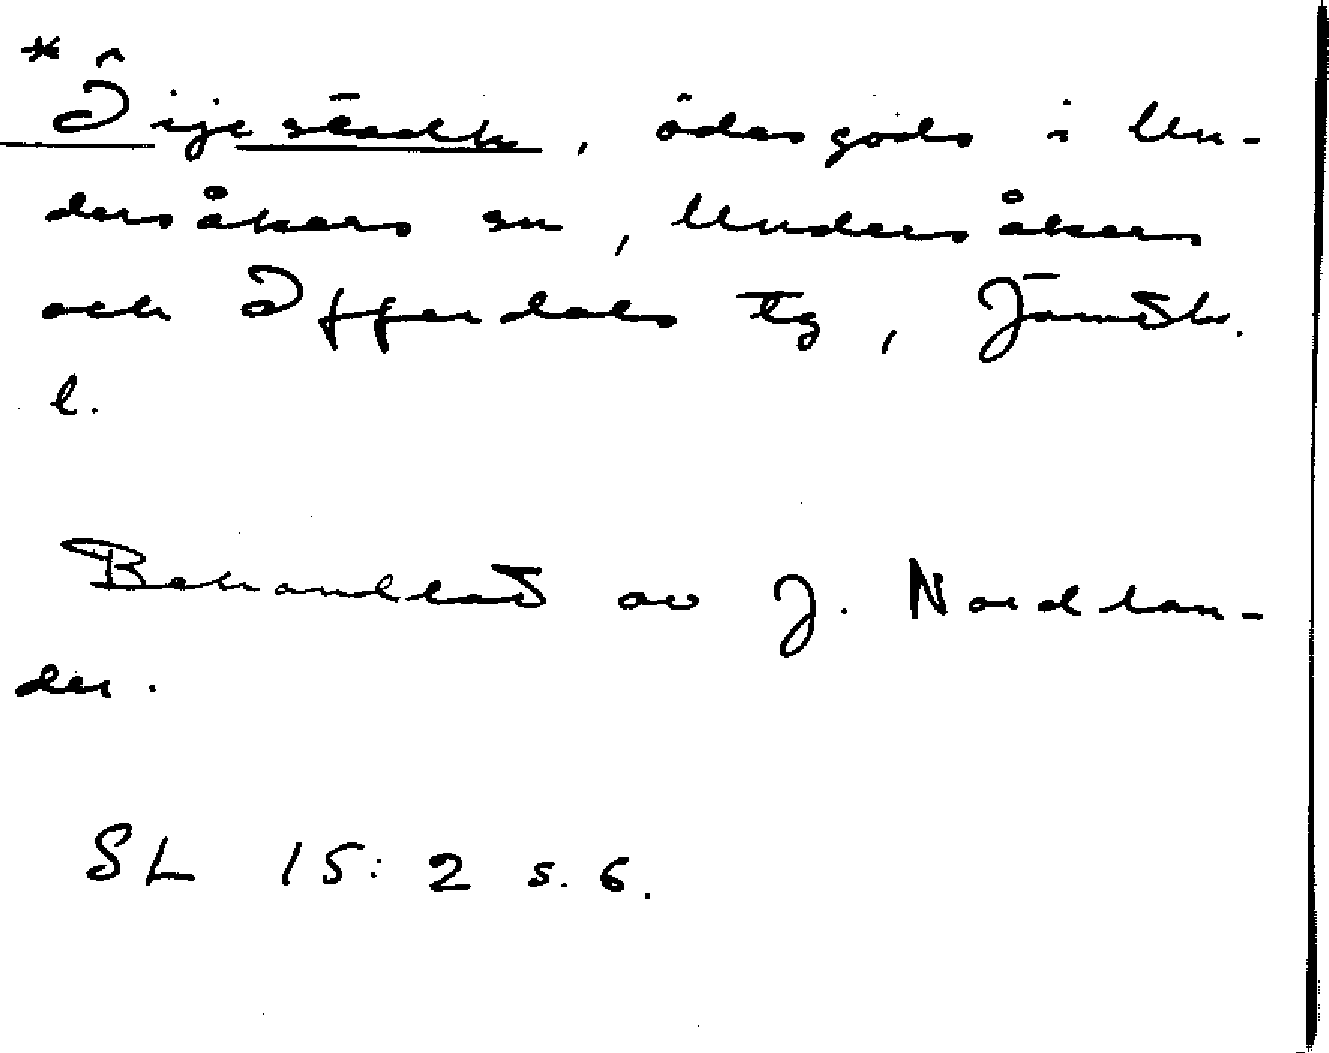 *Öijestadh, ödesgods i Un-
dersåkers sn, Undersåkers
och Offerdals tg, Jämtl.
l.
Behandlat av J. Nordlan-
der.
SL 15: 2 s. 6.